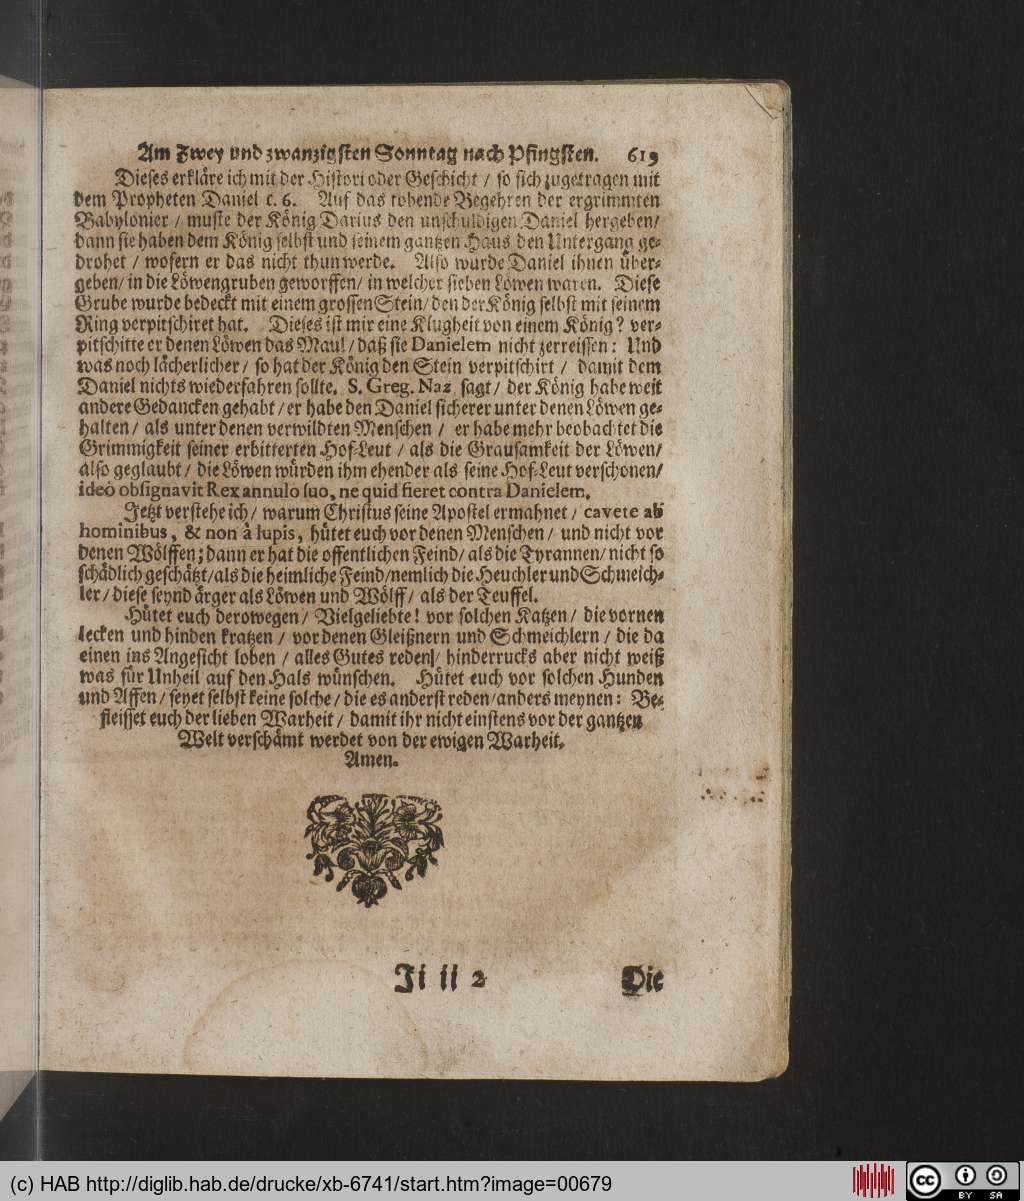 Am Zwey und zwanzigsten Sonntag nach Pfingsten. 619
Dieses erkläre ich mit der Histori oder Geschicht / so sich zugetragen mit
dem Propheten Daniel c. 6. Auf das tobende Begehren der ergrimmten
Babylonier / muste der König Darius den unschuldigen Daniel hergeben/
dann sie haben dem König selbst und seinem gantzen Haus den Untergang ge-
drohet / wofern er das nicht thun werde. Also wurde Daniel ihnen über-
geben/ in die Löwengruben geworffen/ in welcher sieben Löwen waren. Diese
Grube wurde bedeckt mit einem grossen Stein/ den der König selbst mit seinem
Ring verpitschiret hat. Dieses ist mir eine Klugheit von einem König? ver-
pitschitte er denen Löwen das Maul/ daß sie Danielem nicht zerreissen: Und
was noch lächerlicher/ so hat der König den Stein verpitschirt / damit dem
Daniel nichts wiederfahren sollte. S. Greg. Naz sagt/ der König habe weit
andere Gedancken gehabt/ er habe den Daniel sicherer unter denen Löwen ge-
halten/ als unter denen verwildten Menschen/ er habe mehr beobachtet die
Grimmigkeit seiner erbitterten Hof-Leut / als die Grausamkeit der Löwen/
also geglaubt/ die Löwen würden ihm ehender als seine Hof-Leut verschonen/
ideò obsignavit Rex annulo suo, ne quid fieret contra Danielem.
Jetzt verstehe ich/ warum Christus seine Apostel ermahnet / cavete ab
hominibus, & non à lupis, hütet euch vor denen Menschen/ und nicht vor
denen Wölffen; dann er hat die offentlichen Feind/ als die Tyrannen/ nicht so
schädlich geschätzt/als die heimliche Feind/nemlich die Heuchler und Schmeich-
ler/ diese seynd ärger als Löwen und Wölff/ als der Teuffel.
Hütet euch derowegen/ Vielgeliebte! vor solchen Katzen/ die vornen
lecken und hinden kratzen/ vor denen Gleißnern und Schmeichlern/ die da
einen ins Angesicht loben / alles Gutes reden/ hinderrucks aber nicht weiß
was für Unheil auf den Hals wünschen. Hütet euch vor solchen Hunden
und Affen/ seyet selbst keine solche/ die es anderst reden/anders meynen: Be-
fleisset euch der lieben Warheit/ damit ihr nicht einstens vor der gantzen
Welt verschämt werdet von der ewigen Warheit.
Amen.
Ii ii 2 Die
(c) HAB http://diglib.hab.de/drucke/xb-6741/start.htm?image=00679
cc BY SA